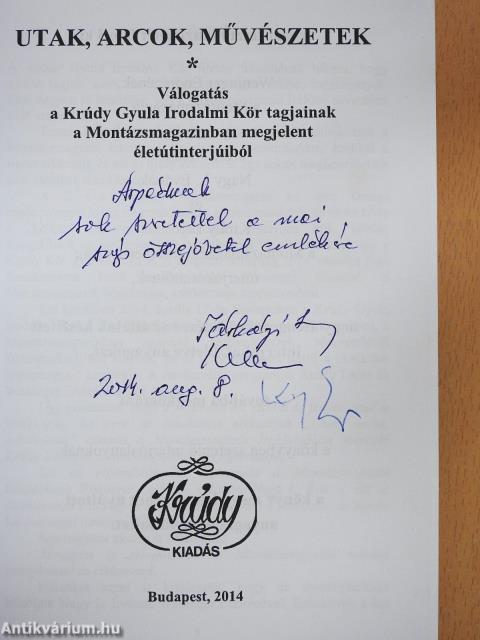 UTAK, ARCOK, MŰVÉSZETEK
*
Válogatás
a Krúdy Gyula Irodalmi Kör tagjainak
a Montázsmagazinban megjelent
életútinterjúiból
Árpádnak
sok szeretettel a mai
szép összejövetel emlékére
2014. aug. 8.
Krúdy
KIADÁS
Budapest, 2014
Antikvárium.hu